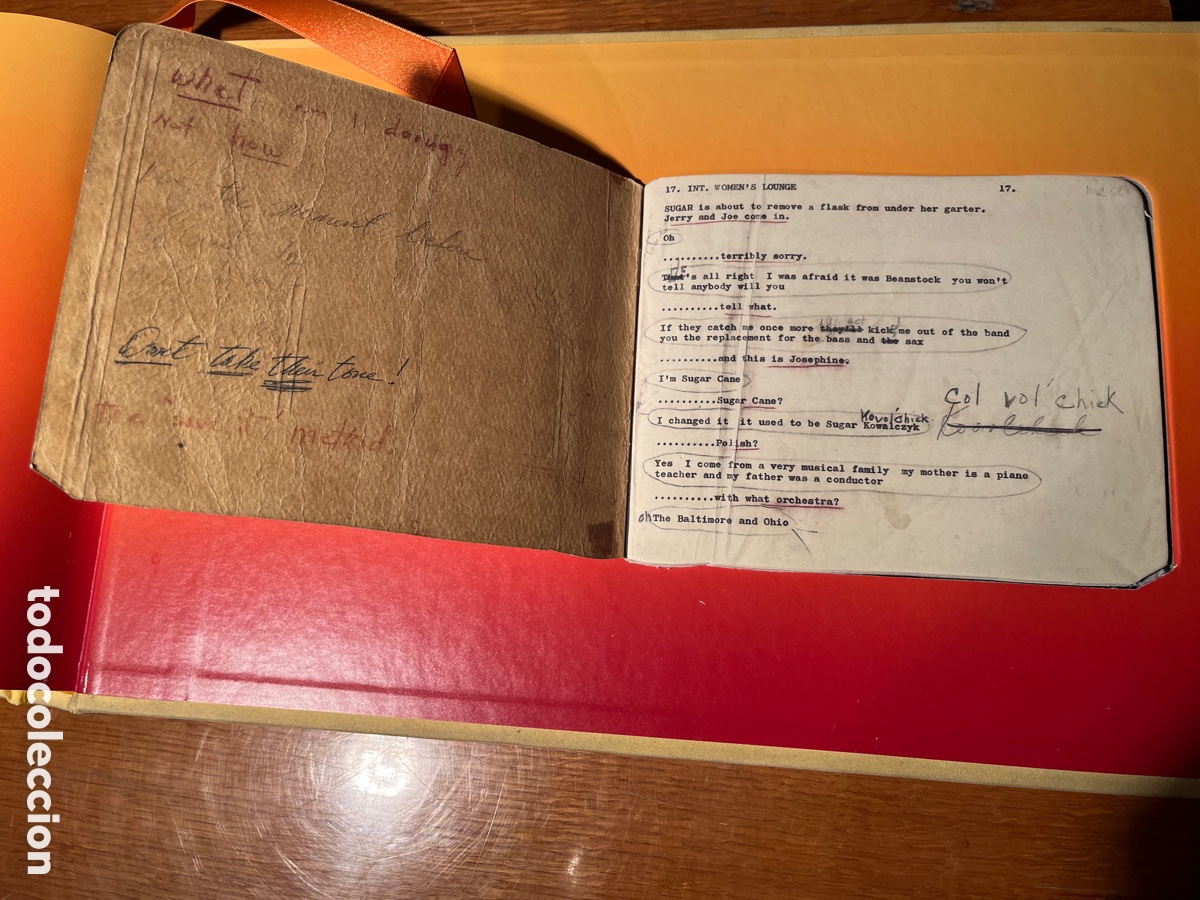 what am I doing
Not how
the moment before
Don't take their tone!
17. INT. WOMEN'S LOUNGE 17.
SUGAR is about to remove a flask from under her garter.
Jerry and Joe come in.
Oh
..........terribly sorry.
That's all right I was afraid it was Beanstock you won't
tell anybody will you
..........tell what.
If they catch me once more they'll kick me out of the band
you the replacement for the bass and the sax
..........and this is Josephine.
I'm Sugar Cane
..........Sugar Cane?
col vol'chick
Kovol'chick
I changed it it used to be Sugar Kowalczyk
..........Polish?
Yes I come from a very musical family my mother is a piano
teacher and my father was a conductor
..........with what orchestra?
oh The Baltimore and Ohio
todocoleccion